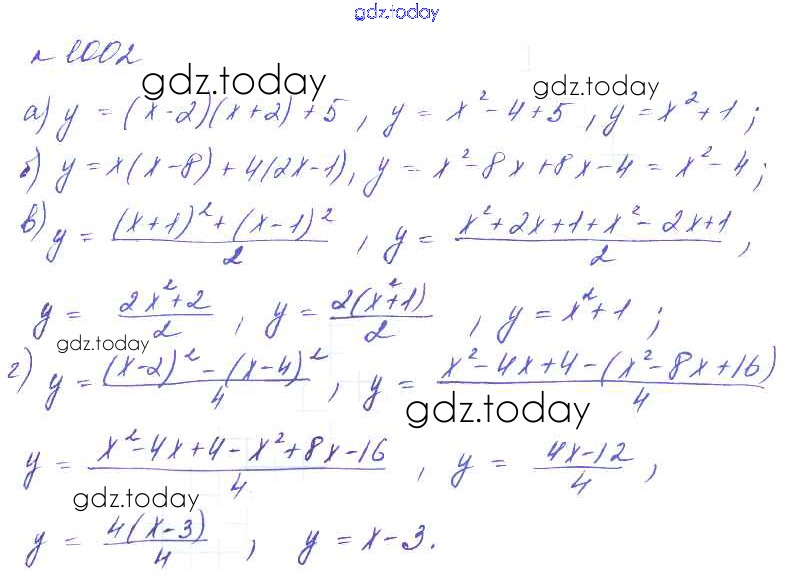 gdz.today
№ 1002
gdz.today gdz.today
а) y = (x-2)(x+2)+5, y = x²-4+5, y = x²+1;
б) y = x(x-8)+4(2x-1), y = x²-8x+8x-4 = x²-4;
в) y = ((x+1)²+(x-1)²)/2, y = (x²+2x+1+x²-2x+1)/2,
y = (2x²+2)/2, y = 2(x²+1)/2, y = x²+1;
gdz.today
г) y = ((x-2)²-(x-4)²)/4, y = (x²-4x+4-(x²-8x+16))/4
gdz.today
y = (x²-4x+4-x²+8x-16)/4, y = (4x-12)/4,
gdz.today
y = 4(x-3)/4, y = x-3.